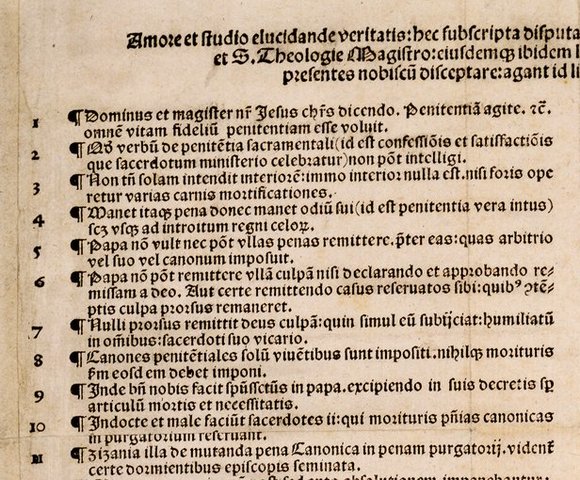 Amore et studio elucidande veritatis: hec subscripta disputa
et S. Theologie Magistro: eiusdemqꝫ ibidem l
presentes nobiscū disceptare: agant id li
1 ¶ Dominus et magister nr̄ Jesus chr̄s dicendo. Penitentiā agite. ⁊c̄.
omnē vitam fideliū penitentiam esse voluit.
2 ¶ Qḋ verbū de penitētia sacramentali (id est confessiōis et satisfactiōis
que sacerdotum ministerio celebratur) non pōt intelligi.
3 ¶ Non tn̄ solam intendit interiorē: immo interior nulla est. nisi foris ope
retur varias carnis mortificationes.
4 ¶ Manet itaqꝫ pena donec manet odiū sui (id est penitentia vera intus)
scꝫ vsqꝫ ad introitum regni celoꝝ.
5 ¶ Papa nō vult nec pōt vllas penas remittere. p̄ter eas: quas arbitrio
vel suo vel canonum imposuit.
6 ¶ Papa nō pōt remittere vllā culpā nisi declarando et approbando re-
missam a deo. Aut certe remittendo casus reseruatos sibi: quibꝰ ꝯtē-
ptis culpa prorsus remaneret.
7 ¶ Nulli prorsus remittit deus culpā: quin simul eū subijciat: humiliatū
in om̄ibus: sacerdoti suo vicario.
8 ¶ Canones penitētiales solū viuētibus sunt impositi. nihilqꝫ morituris
ẜm eosdem debet imponi.
9 ¶ Inde bn̄ nobis facit spūssctūs in papa. excipiendo in suis decretis sꝑ
articulū mortis et necessitatis.
10 ¶ Indocte et male faciūt sacerdotes ii: qui morituris pn̄ias canonicas
in purgatorium reseruant.
11 ¶ Zizania illa de mutanda pena Canonica in penam purgatorij. vident̄
certe dormientibus episcopis seminata.